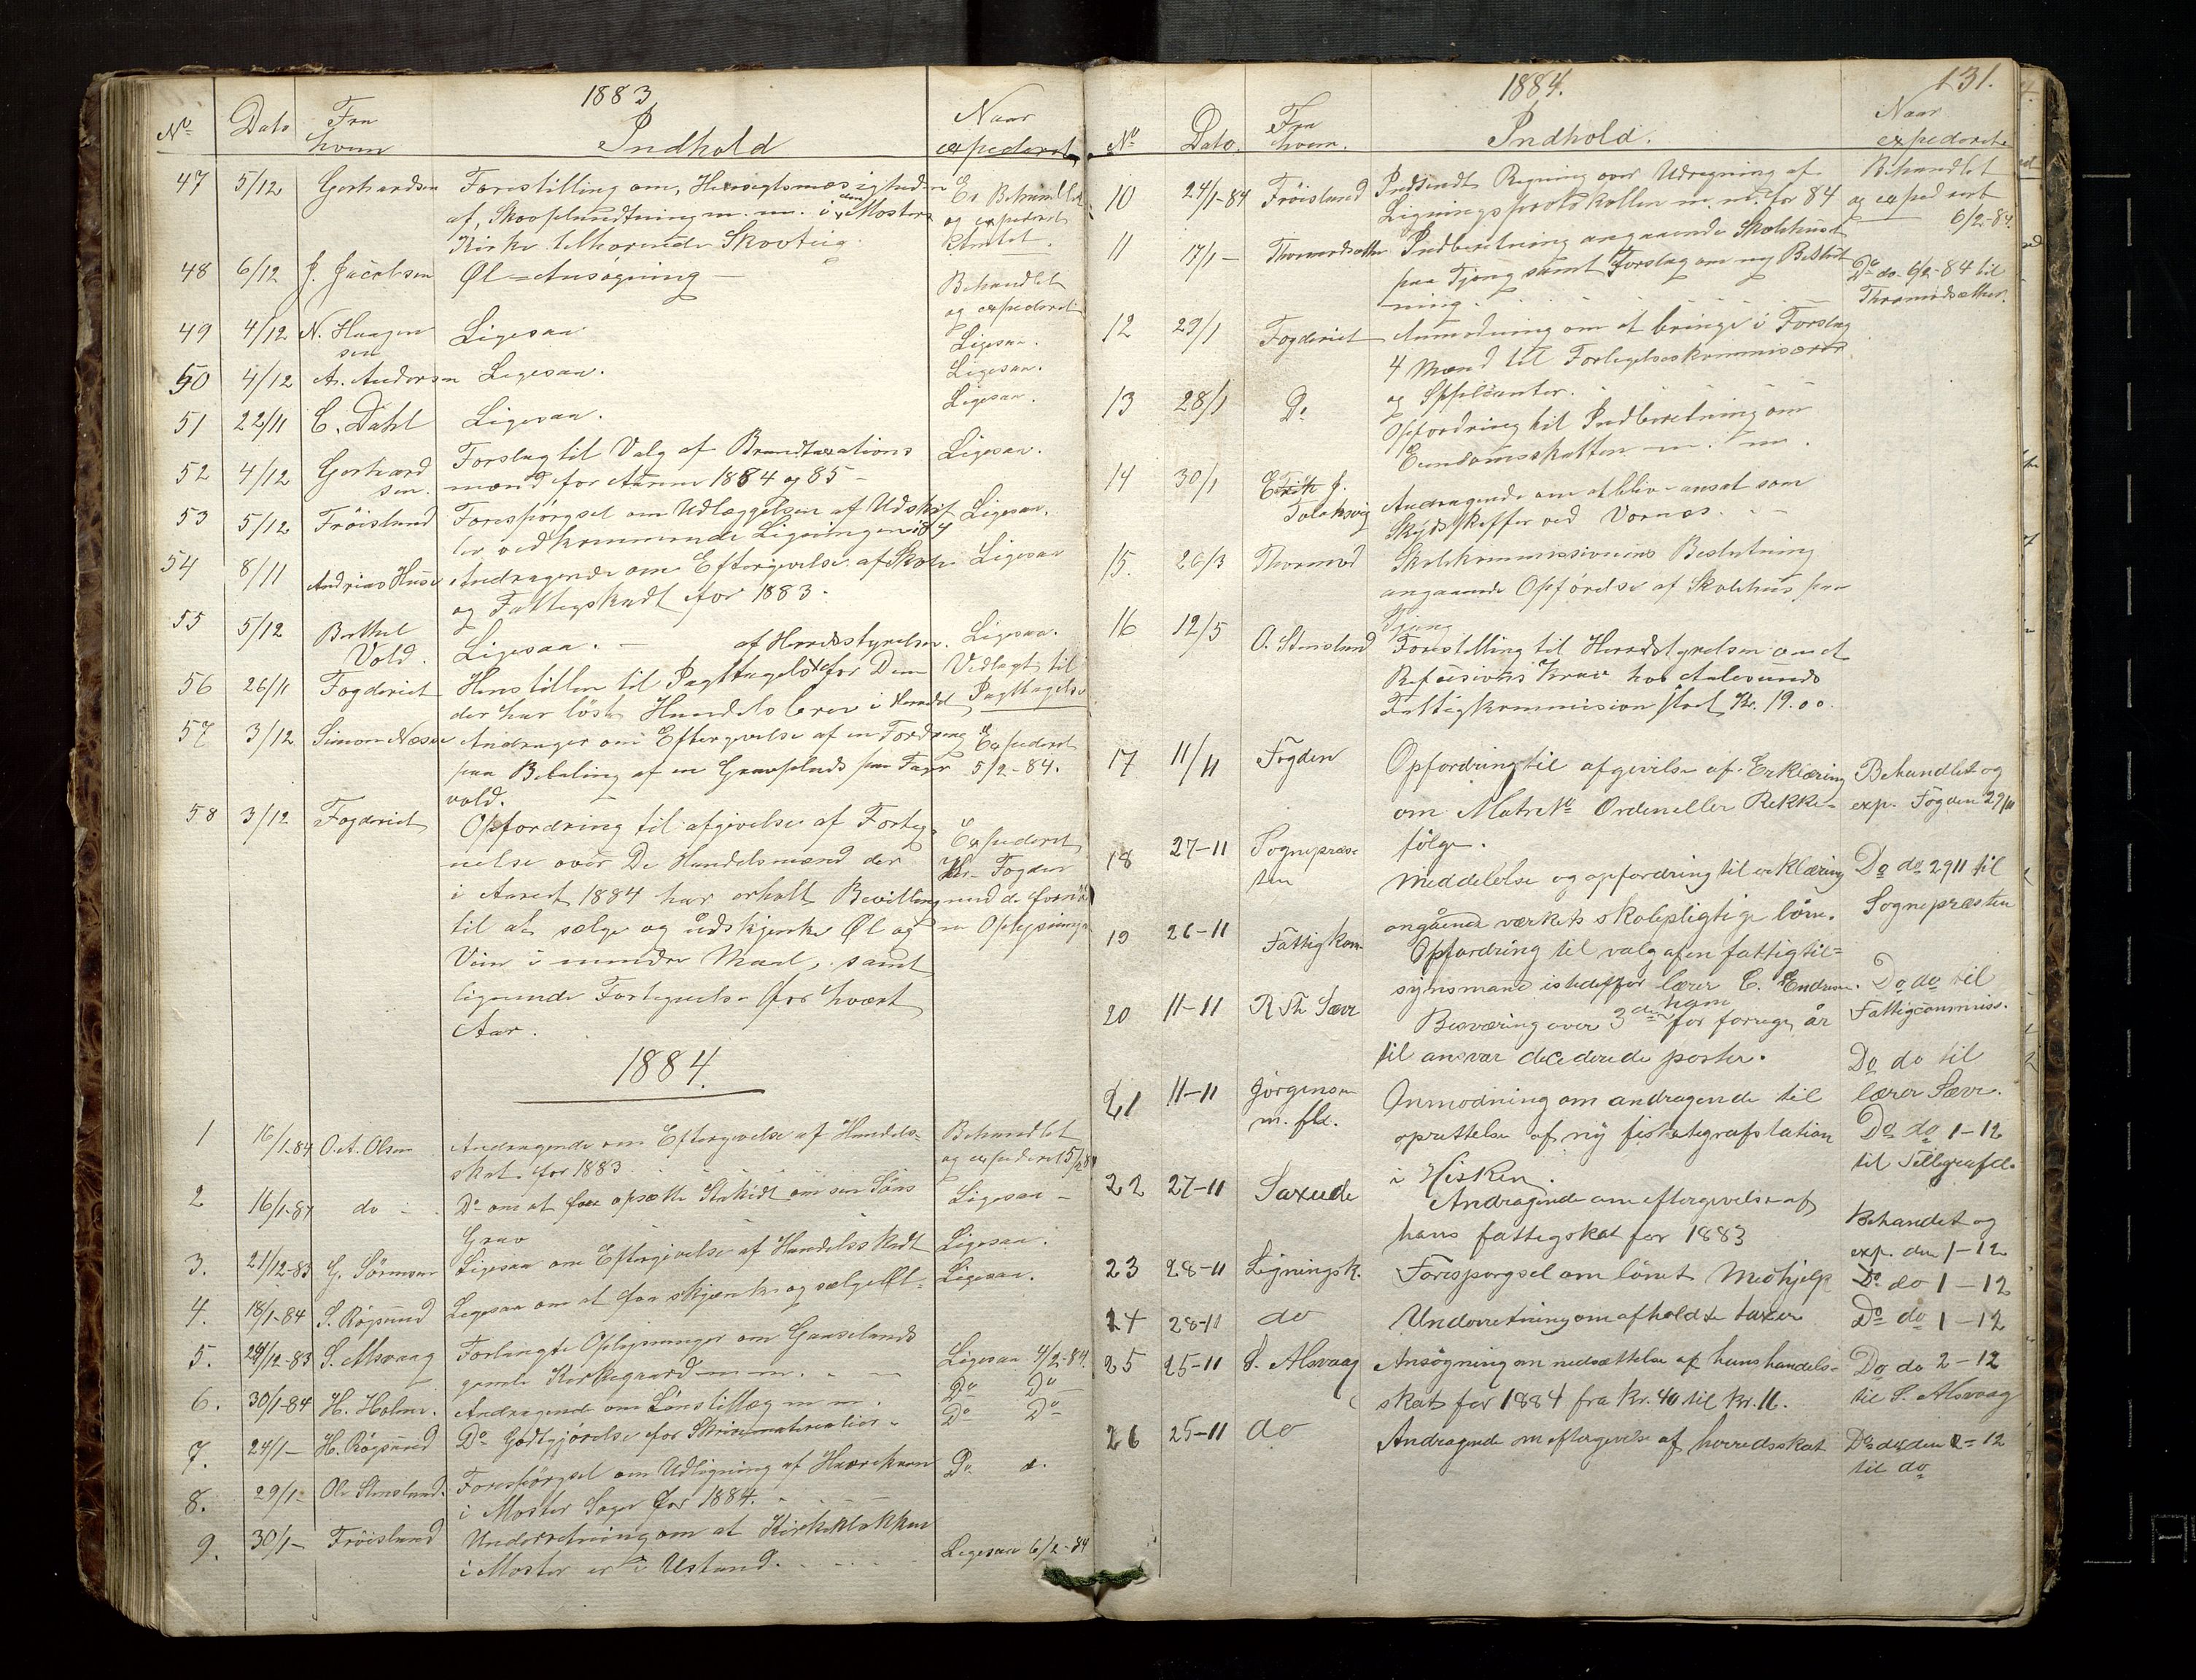 1883
No Dato Fra hvem Indhold Naar expederet
47 5/12 Gerhardsen Forestilling om, Hensigtsmæsigheden Er Behandlet
af, Skovplandtning m. m. i den Mosters og expederet
Kirke tilhørende Skovteig. Amtet.
48 6/12 J. Jacobsen Øl-Ansøgning — Behandlet
og expederet
49 4/12 N. Haagensen Ligesaa Ligesaa.
50 4/12 A. Andersen Ligesaa. Ligesaa.
51 22/11 C. Dahl Ligesaa. Ligesaa.
52 4/12 Gerhardsen. Forslag til Valg af Brandtaxations Ligesaa.
mænd for Aarene 1884 og 85 —
53 5/12 Fröisland Forespörgsel om Udlæggelsen af Udskrift Ligesaa.
ler vedkommende Ligningen 84
54 8/11 Andrias Huse Andragende om Eftergivelse af Skole Ligesaa
og Fattigskadt for 1883.
55 5/12 Berthel Vold. Ligesaa. — af Herredsstyrelsen. Ligesaa.
56 26/11 Fogderiet Henstillen til Iagttagelse for Dem Vedlagt til
der har löst Handelsbrev i Herredet Iagttagelse
57 3/12 Simon Næsse Andrager om Eftergivelse af en Fordring Expederet
paa Betaling af en Gravplads paa 5/2-84.
vold.
58 3/12 Fogderiet Opfordring til afgivelse af Forteg- Expederet
nelse over De Handelsmænd der Hr. Fogden
i Aaret 1884 har erholdt Bevilling med de fornödne
til at sælge og udskjenke Øl og Oplysninger
Viin i mindre Maal, samt
lignende Fortegnelse for hvert
Aar.
1884.
1 16/1-84 O. A. Olsen Andragende om Eftergivelse af Handels- Behandlet
skat for 1883 og expederet 5/2 84
2 16/1-84 do — Do om at faa opsætte Stakidt om sin Söns Ligesaa —
Grav
3. 21/12-83 G. Sörensen Ligesaa om Eftergivelse af Handelsskadt Ligesaa.
4. 18/1-84 S. Rögsund Ligesaa om at faa skjænke og sælge Øl. Ligesaa.
5. 29/12-83 S. Alsvaag Forlangte Oplysninger om Gaaselands Ligesaa 4/2-84.
gamle Kirkegaard m m.
6. 30/1-84 H. Holm. Andragende om Lönstillæg m m. Do Do
7. 24/1— H. Rögsund Do Godtgjørelse for Skrivematerialier. Do Do
8. 29/1— Ole Stensland. Forespörgsel om Udligning af Havrekorn Do d.
i Moster Sogn for 1884.
9. 30/1— Fröisland Underretning om at Kirkeklokken
i Moster er i Ustand. Ligesaa 6/2-84
1884. 131.
No Dato. Fra hvem. Indhold. Naar expederet
10 24/1-84 Fröisland Indsendt Regning over Udregning af Behandlet
Ligningsprotokollen m. m. for 84 og expederet
6/2-84.
11 17/1— Thormodsæther Indberetning angaaende Skolehuset
paa Tjong samt Forslag om ny Beslut- Do do 6/2-84 til
ning. Thormodsæther.
12 29/1 Fogderiet Anmodning om at bringe i Forslag
4 Mænd til Forligelseskommisærer
og Suppleanter.
13 28/1 Do Opfordring til Indberetning om
Eiendomsskatten m. m.
14 30/1 E J. Andragende om at blive ansat som
Skydsskaffer ved Vornes.
15. 26/3 Thormod Skolekommissionens Beslutning
angaaende Opförelse af Skolehus paa
Tjong
16 12/5 O. Stensland Forestilling til Herredstyrelsen om et
Refusions Krav hos Aalesunds
Fattigkommision stort Kr. 19.00.
17 11/11 Fogden Opfordring til afgivelse af Erklæring Behandlet og
om Matr No Orden eller Rekke- exp. Fogden 29/11
fölge.
18 27-11 Sognepræsten Meddelelse og opfordring til erklæring Do do 29 11 til
angående værkets skolepligtige börn. Sognepræsten
19 26-11 Fattigkom. Opfordring til valg af en fattigtil=
synsmand istedetfor lærer C. Endresen. Do do til
Fattigcommiss.
20 11-11 R Th Sævr Besværing over 3 den ham for forrige år
til ansvar decederede poster. Do do til
lærer Sævr.
21 11-11 Jörgensen m. fld. Anmodning om andragende til
oprettelse af ny fisketelegrafstation Do do 1-12
i Hisken. til Tellegrafd.
22 27-11 Saxude Andragende om eftergivelse af
hans fattigskat for 1883 Behandlet og
exp. den 1-12
23 28-11 Ligningsk. Forespørgsel om lönet Medhjelp Do do 1-12
24 28-11 do Underretning om afholdte taxter Do do 1-12
25 25-11 S. Alsvaag Ansögning om nedsættelse af hans handels- Do do 2-12
skat for 1884 fra kr. 40 til kr. 11. til S. Alsvaag
26 25-11 do Andragende om eftergivelse af herredsskat Do do den 2-12
til do